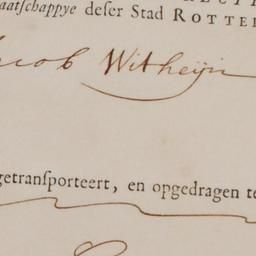 aatschappye deser Stad ROTTE
acob Witheijn
getransporteert, en opgedragen te